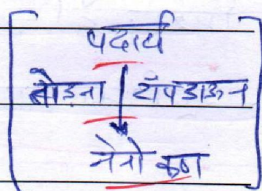 पदार्थ
तोड़ना टॉपडाऊन
नेनो कण